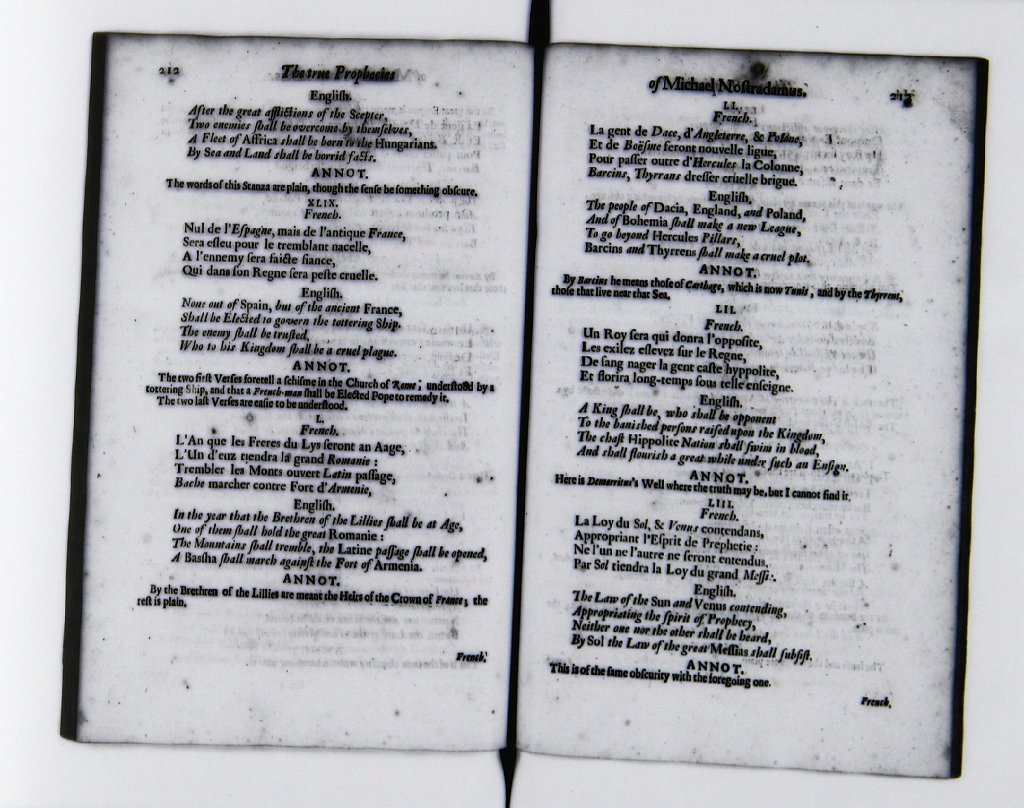 212 The true Prophecies
English.
After the great afflictions of the Scepter,
Two enemies shall be overcome by themselves,
A Fleet of Affrica shall be born to the Hungarians.
By Sea and Land shall be horrid facts.
ANNOT.
The words of this Stanza are plain, though the sense be something obscure.
XLIX.
French.
Nul de l'Espagne, mais de l'antique France,
Sera esleu pour le tremblant nacelle,
A l'ennemy sera faicte fiance,
Qui dans son Regne sera peste cruelle.
English.
None out of Spain, but of the ancient France,
Shall be Elected to govern the tottering Ship.
The enemy shall be trusted,
Who to his Kingdom shall be a cruel plague.
ANNOT.
The two first Verses foretell a schisme in the Church of Rome; understood by a
tottering Ship, and that a French-man shall be Elected Pope to remedy it.
The two last Verses are easie to be understood.
L.
French.
L'An que les Freres du Lys seront an Aage,
L'Un d'euz tiendra la grand Romanie:
Trembler les Monts ouvert Latin passage,
Bache marcher contre Fort d'Armenie,
English.
In the year that the Brethren of the Lillies shall be at Age,
One of them shall hold the great Romanie:
The Mountains shall tremble, the Latine passage shall be opened,
A Bassha shall march against the Fort of Armenia.
ANNOT.
By the Brethren of the Lillies are meant the Heirs of the Crown of France; the
rest is plain.
French.
of Michael Nostradamus.
LI.
French.
La gent de Dace, d'Angleterre, & Polône,
Et de Boësme feront nouvelle ligue,
Pour passer outre d'Hercules la Colonne,
Barcins, Thyrrans dresser cruelle brigue.
English.
The people of Dacia, England, and Poland,
And of Bohemia shall make a new League,
To go beyond Hercules Pillars,
Barcins and Thyrrens shall make a cruel plot.
ANNOT.
By Barcins he means those of Carthage, which is now Tunis, and by the Thyrrens,
those that live near that Sea.
LII.
French.
Un Roy sera qui donra l'opposite,
Les exilez eslevez sur le Regne,
De sang nager la gent caste hyppolite,
Et florira long-temps sous telle enseigne.
English.
A King shall be, who shall be opponent
To the banished persons raised upon the Kingdom,
The chast Hippolite Nation shall swim in blood,
And shall flourish a great while under such an Ensign.
ANNOT.
Here is Democritus's Well where the truth may be, but I cannot find it.
LIII.
French.
La Loy du Sol, & Venus contendans,
Appropriant l'Esprit de Prophetie:
Ne l'un ne l'autre ne seront entendus,
Par Sol tiendra la Loy du grand
English.
The Law of the Sun and Venus contending,
Appropriating the spirit of Prophecy,
Neither one nor the other shall be heard,
By Sol the Law of the great Messias shall subsist.
ANNOT.
This is of the same obscurity with the foregoing one.
French.